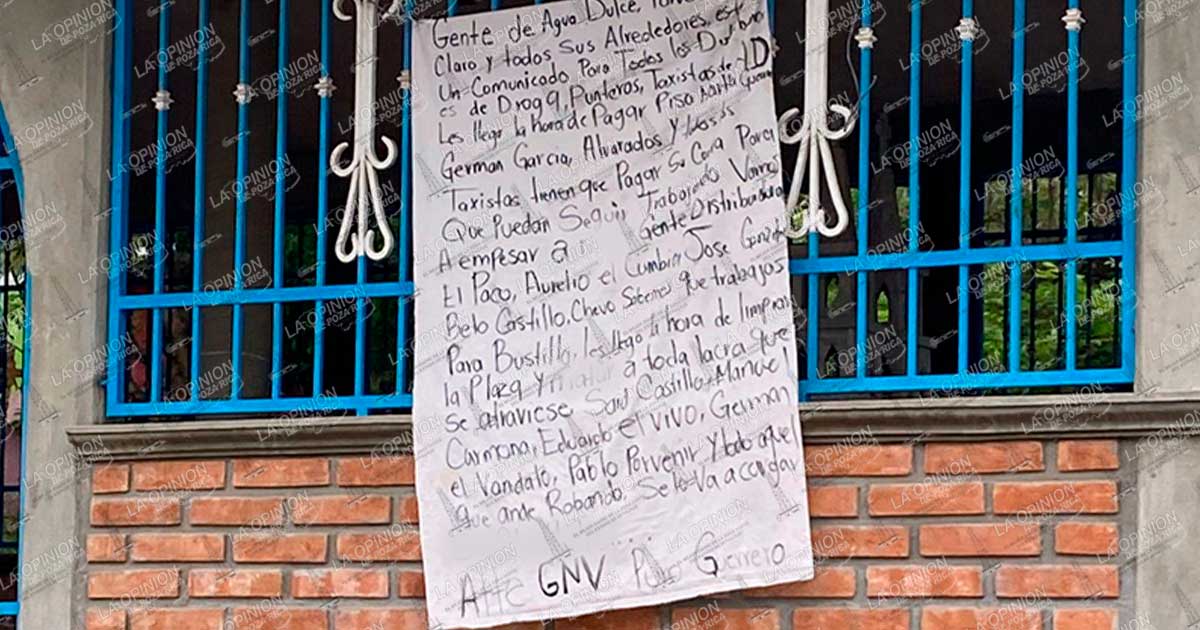 Gente de Agua Dulce,
Claro y todos Sus Alrededores, est
Un Comunicado Para Todos los Distri
es de Droga, Punteros, Taxistas de
Les llego la hora de Pagar Piso
German Garcia, Alvarados y
Taxistas tienen que Pagar Su Cota Para
Que Puedan Seguir Trabajando Vamos
A empesar a Gente Distribuidora
El Paco, Aurelio el Cumbia Jose
Beto Castillo, Chevo Sabemos que trabajas
Para Bustillo, les llego la hora de limpiar
la Plaza Y matar a toda lacra que
se atraviese Castillo, Manuel
Carmona, Eduardo el vivo, German
el Vandalo, Pablo Porvenir Y todo aquel
que ande Robando. Se lo Va a cargar
Atte GNV Gerrero
LA OPINION
DE POZA RICA